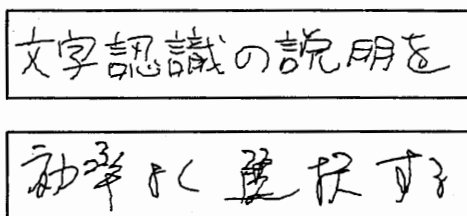 文字認識の説明を
効率よく選択する